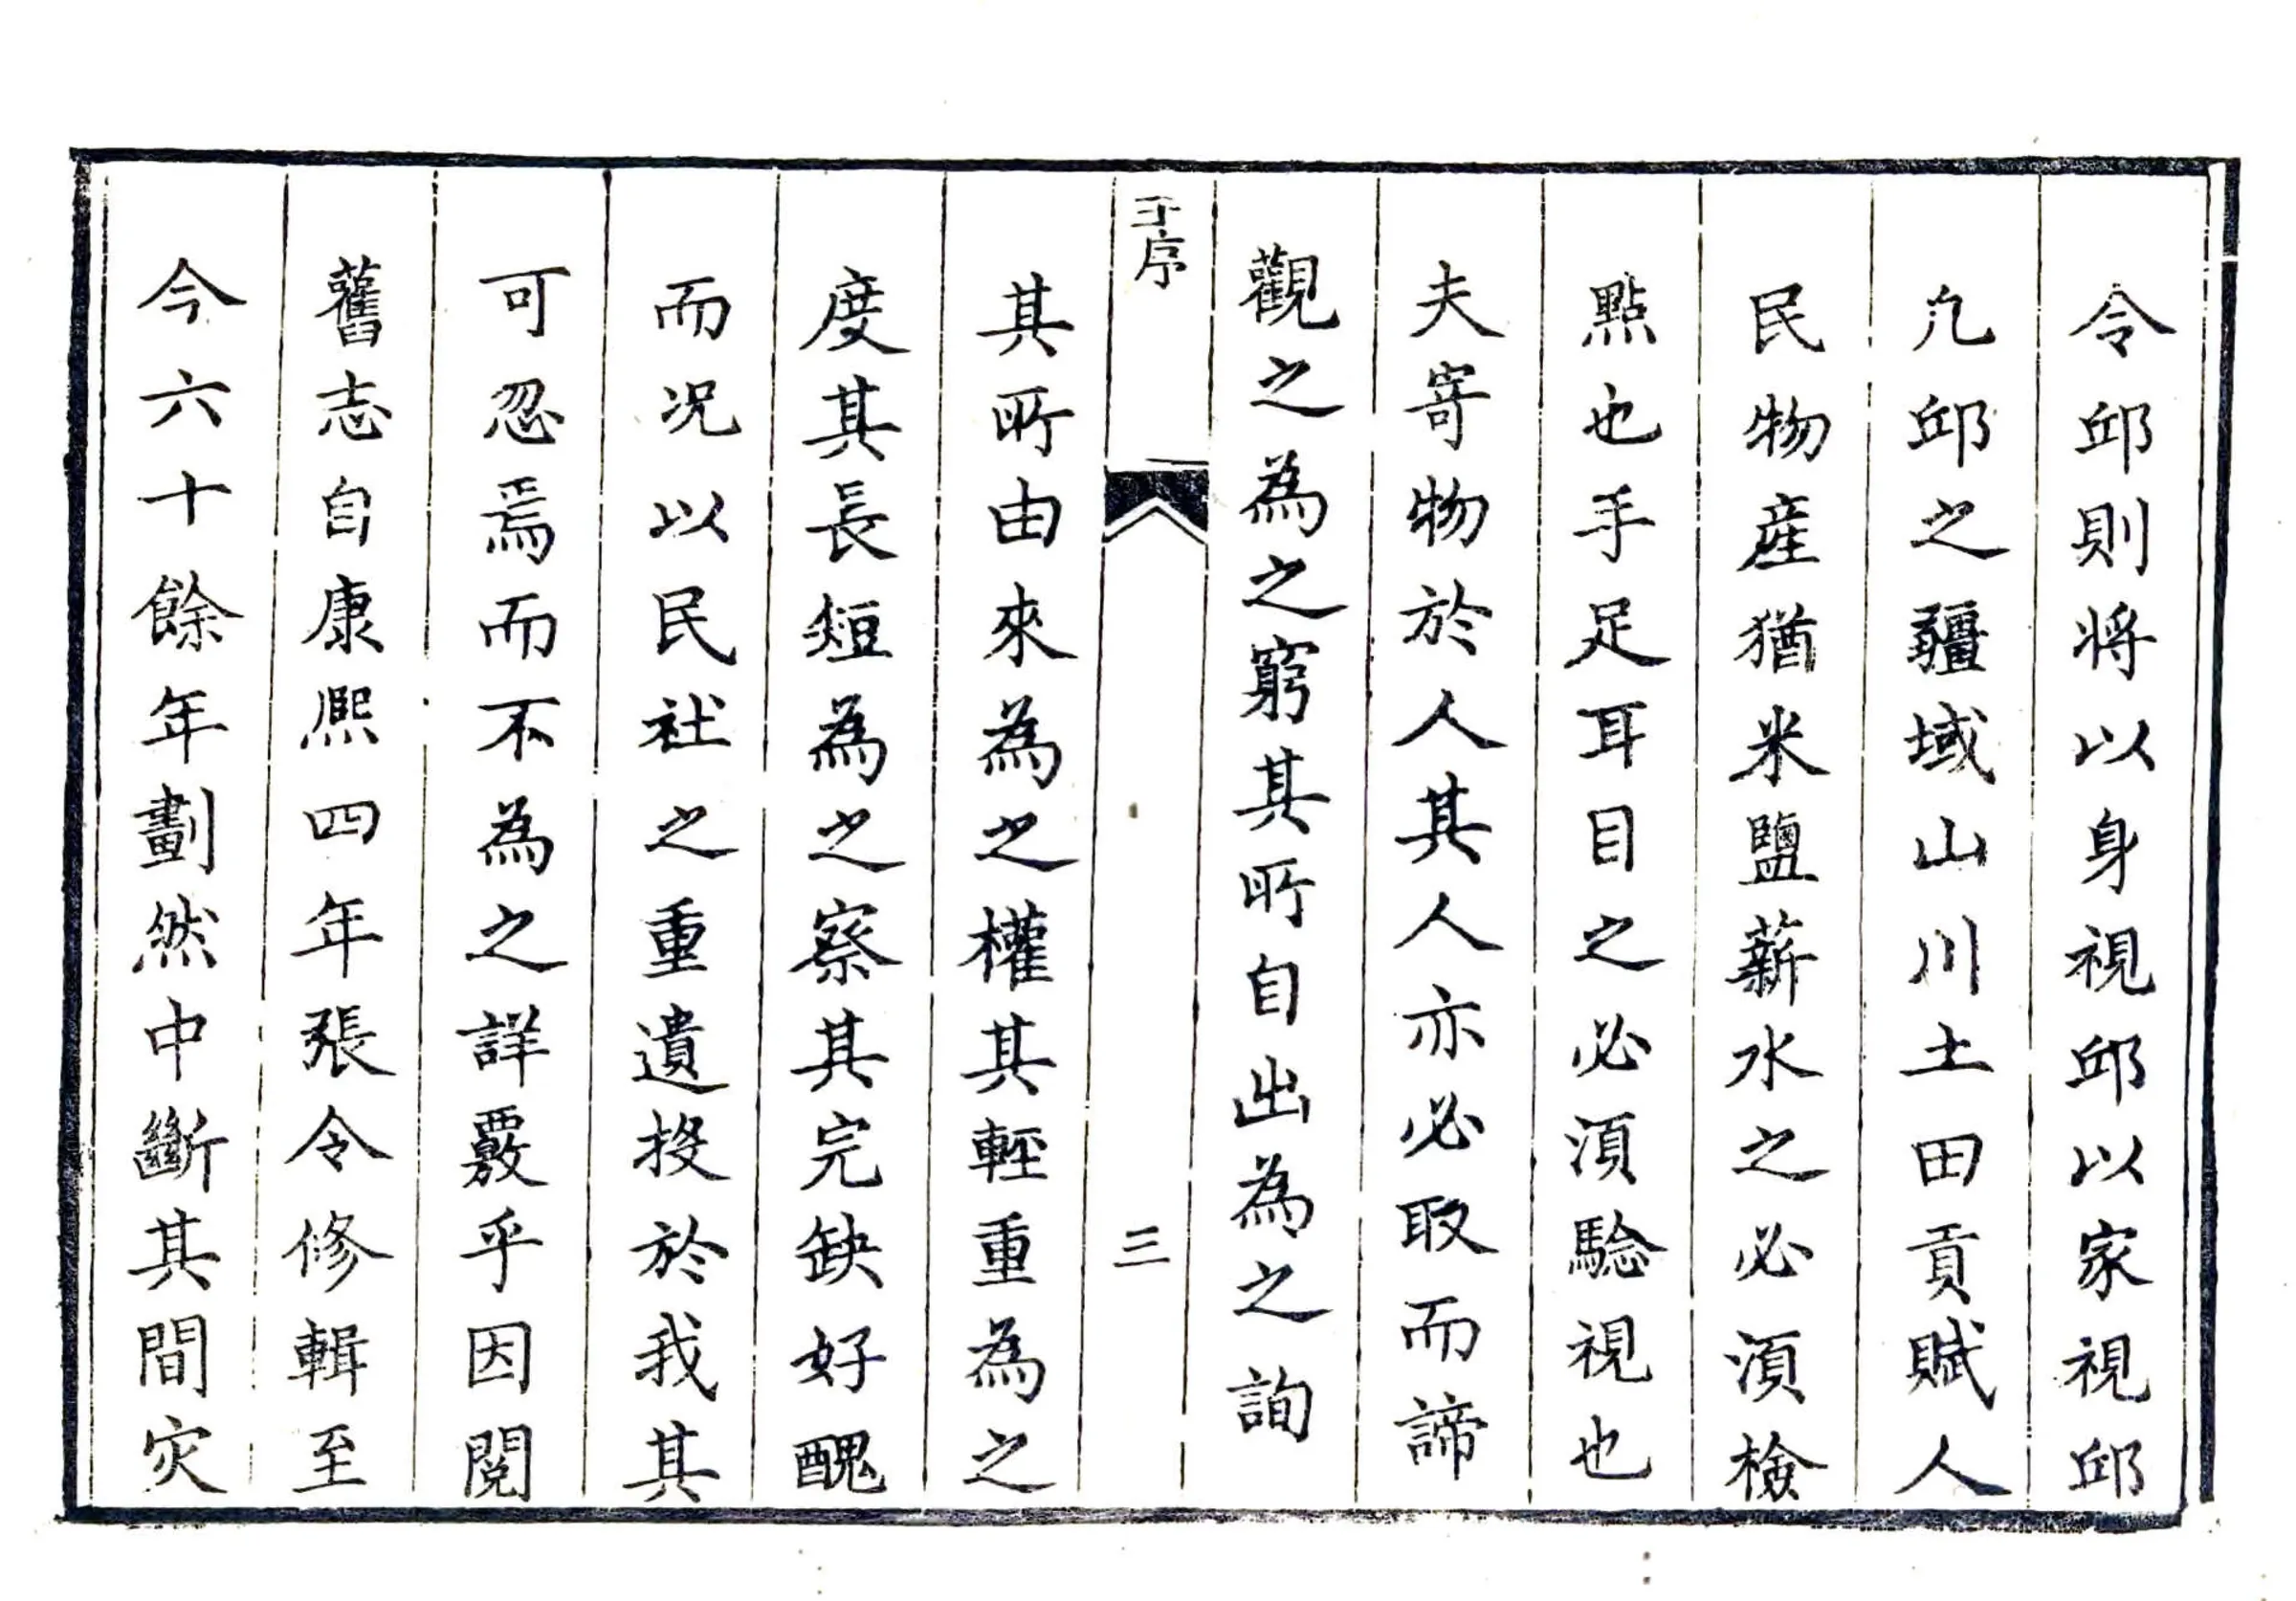 令邱則將以身視邱以家視邱
凢邱之疆域山川土田貢賦人
民物産猶米鹽薪水之必湏檢
點也手足耳目之必湏驗視也
夫寄物於人其人亦必取而諦
觀之為之窮其所自出為之詢
序
三
其所由來為之權其輕重為之
度其長短為之察其完缺好醜
而况以民社之重遺投於我其
可忍焉而不為之詳覈乎因閱
舊志自康熙四年張令修輯至
今六十餘年劃然中斷其間灾